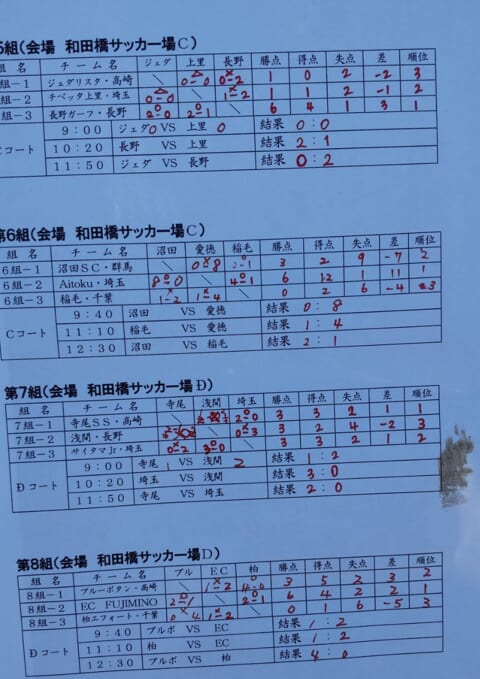 5組(会場 和田橋サッカー場C)
組 名 チ ー ム 名 ジェダ 上里 長野 勝点 得点 失点 差 順位
組－1 ジェダリスタ・高崎 ＼ 0－0 0－2 1 0 2 -2 3
組－2 チベッタ上里・埼玉 0－0 ＼ 1－2 1 1 2 -1 2
組－3 長野ガーフ・長野 2－0 2－1 ＼ 6 4 1 3 1
9：00 ジェダ 0 VS 上里 0 結果 0:0
Cコート 10：20 長野 VS 上里 結果 2:1
11：50 ジェダ VS 長野 結果 0:2
第6組(会場 和田橋サッカー場C)
組 名 チ ー ム 名 沼田 愛徳 稲毛 勝点 得点 失点 差 順位
6組－1 沼田SC・群馬 ＼ 0－8 2－1 3 2 9 -7 2
6組－2 Aitoku・埼玉 8－0 ＼ 4－1 6 12 1 11 1
6組－3 稲毛・千葉 1－2 1－4 ＼ 0 2 6 -4 3
9：40 沼田 VS 愛徳 結果 0:8
Cコート 11：10 稲毛 VS 愛徳 結果 1:4
12：30 沼田 VS 稲毛 結果 2:1
第7組(会場 和田橋サッカー場D)
組名 チ ー ム 名 寺尾 浅間 埼玉 勝点 得点 失点 差 順位
7組－1 寺尾SS・高崎 ＼ 2－0 3 3 2 1 1
7組－2 浅間・長野 ＼ 0－3 3 2 4 -2 3
7組－3 サイタマJr・埼玉 0－2 3－0 ＼ 3 3 2 1 2
9：00 寺尾 1 VS 浅間 2 結果 1:2
Dコート 10：20 埼玉 VS 浅間 結果 3:0
11：50 寺尾 VS 埼玉 結果 2:0
第8組(会場 和田橋サッカー場D)
組名 チ ー ム 名 ブル EC 柏 勝点 得点 失点 差 順位
8組－1 ブルーボタン・高崎 ＼ 1－2 4－0 3 5 2 3 2
8組－2 EC FUJIMINO 2－1 ＼ 2－1 6 4 2 2 1
8組－3 柏エフォート・千葉 0 4 1－2 ＼ 0 1 6 -5 3
9：40 ブルボ VS EC 結果 1:2
Dコート 11：10 柏 VS EC 結果 1:2
12：30 ブルボ VS 柏 結果 4:0